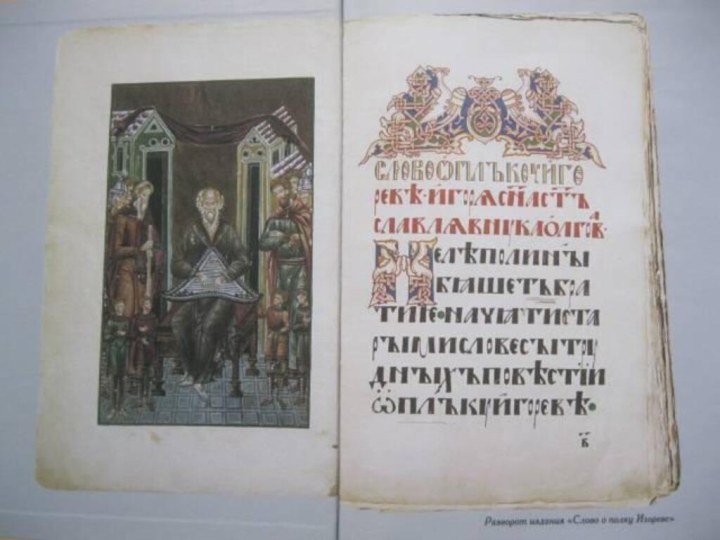 СЛОВОѠПЛЪКОУИГО
РЕВѢ·ИГОРѦСН҃АСТ҃Ъ
СЛАВЛѦВНꙊКАОЛГОВА·
НЕЛѢПОЛИНЫ
БѦШЕТЪБРА
ТИЕ·НАЧѦТИСТА
РЫМИСЛОВЕСЫТРꙊ
ДНЫХЪПОВѢСТІИ
ѠПЛЪКꙊИГОРЕВѢ·
В҃
Разворот издания «Слово о полку Игореве»